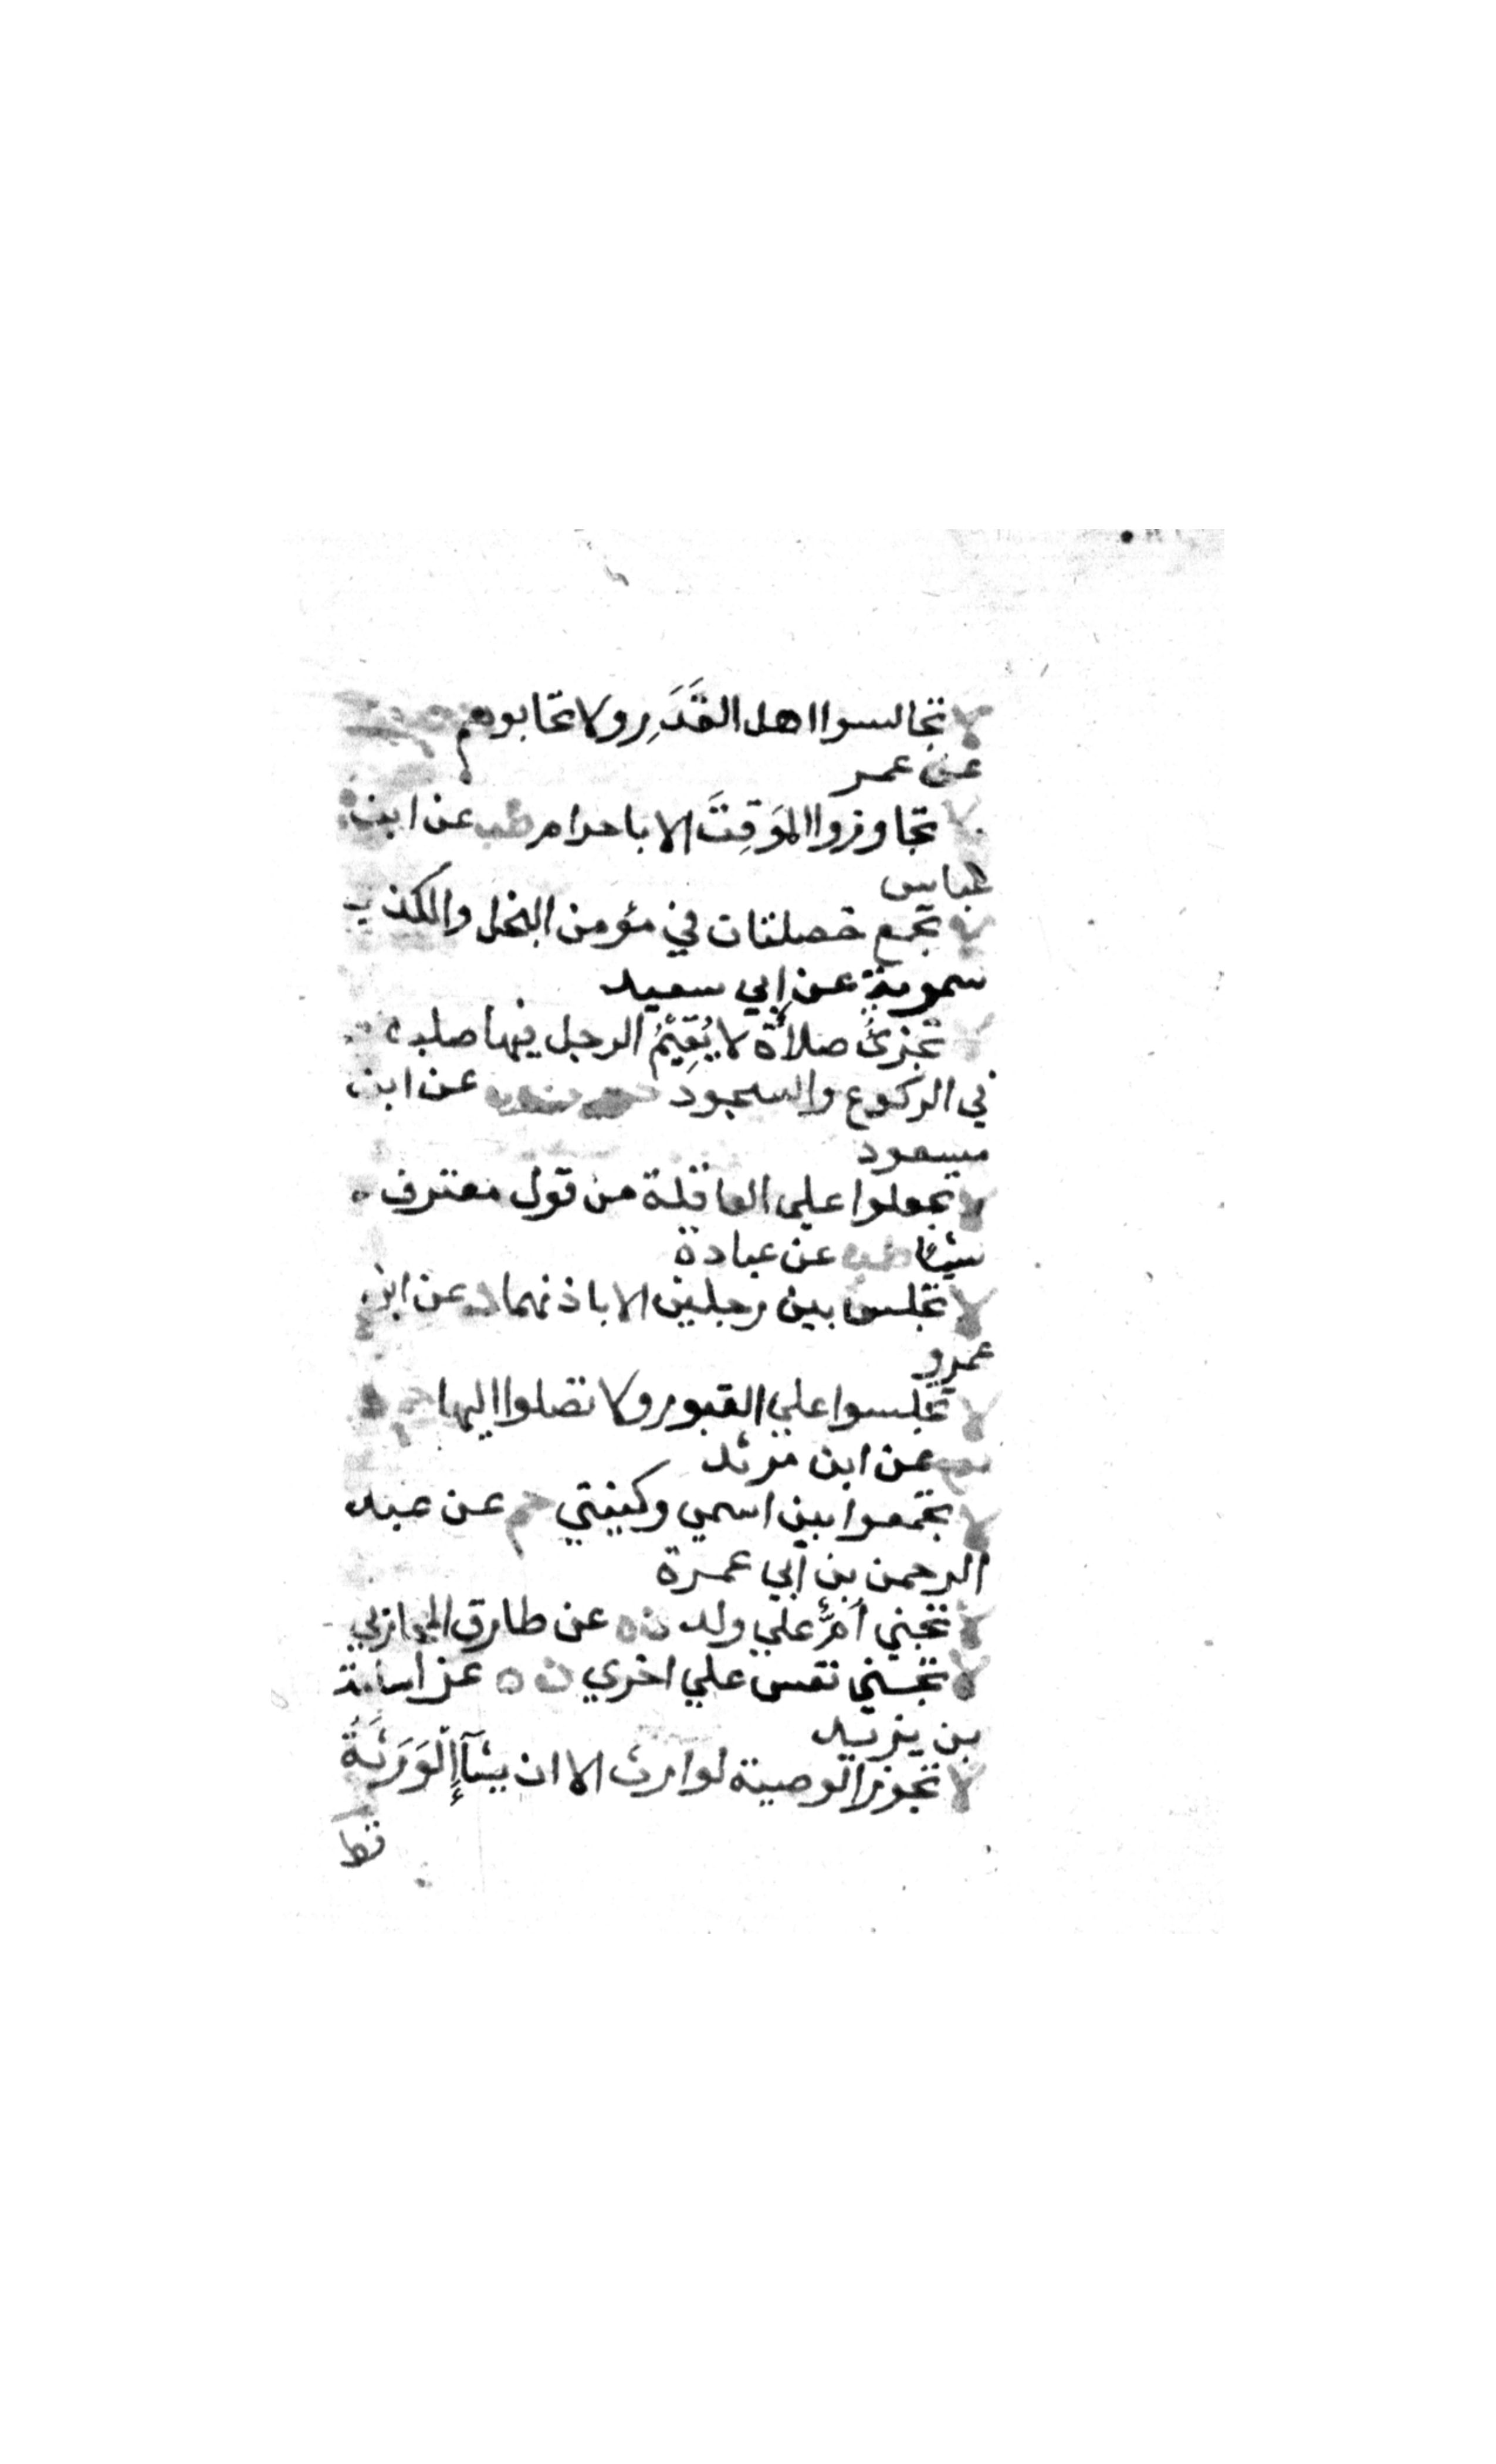 لا تجالسوا اهل القَدَرِ ولا تحابوهم
عن عمر
لا تجاوزوا المَوقِتَ الا باحرام طب عن ابن
عباس
لا تجمع خصلتان في مؤمن البخل والكذب
سموية عن ابي سعيد
لا تجزئُ صلاة لا يُقِيْمُ الرجل فيها صلبه
في الركوع والسجود عن ابن
مسعود
لا تجعلوا على العاقلة من قول معترف
شيئا طب عن عبادة
لا تجلس بين رجلين الا باذنهما د عن ابن
عمرو
لا تجلسوا علي القبور ولا تصلوا اليها حم
عن ابن مرثد
لا تجمعوا بين اسمي وكنيتي حم عن عبد
الرحمن بن ابي عمرة
لا تجني اُمٌّ علي ولد ن ه عن طارق المحازلي
لا تجني نفس علي اخري ن ه عن اسامة
بن يزيد
لا تجوز الوصية لوارث الا ان يشآإ الْوَرَثَةُ
قط